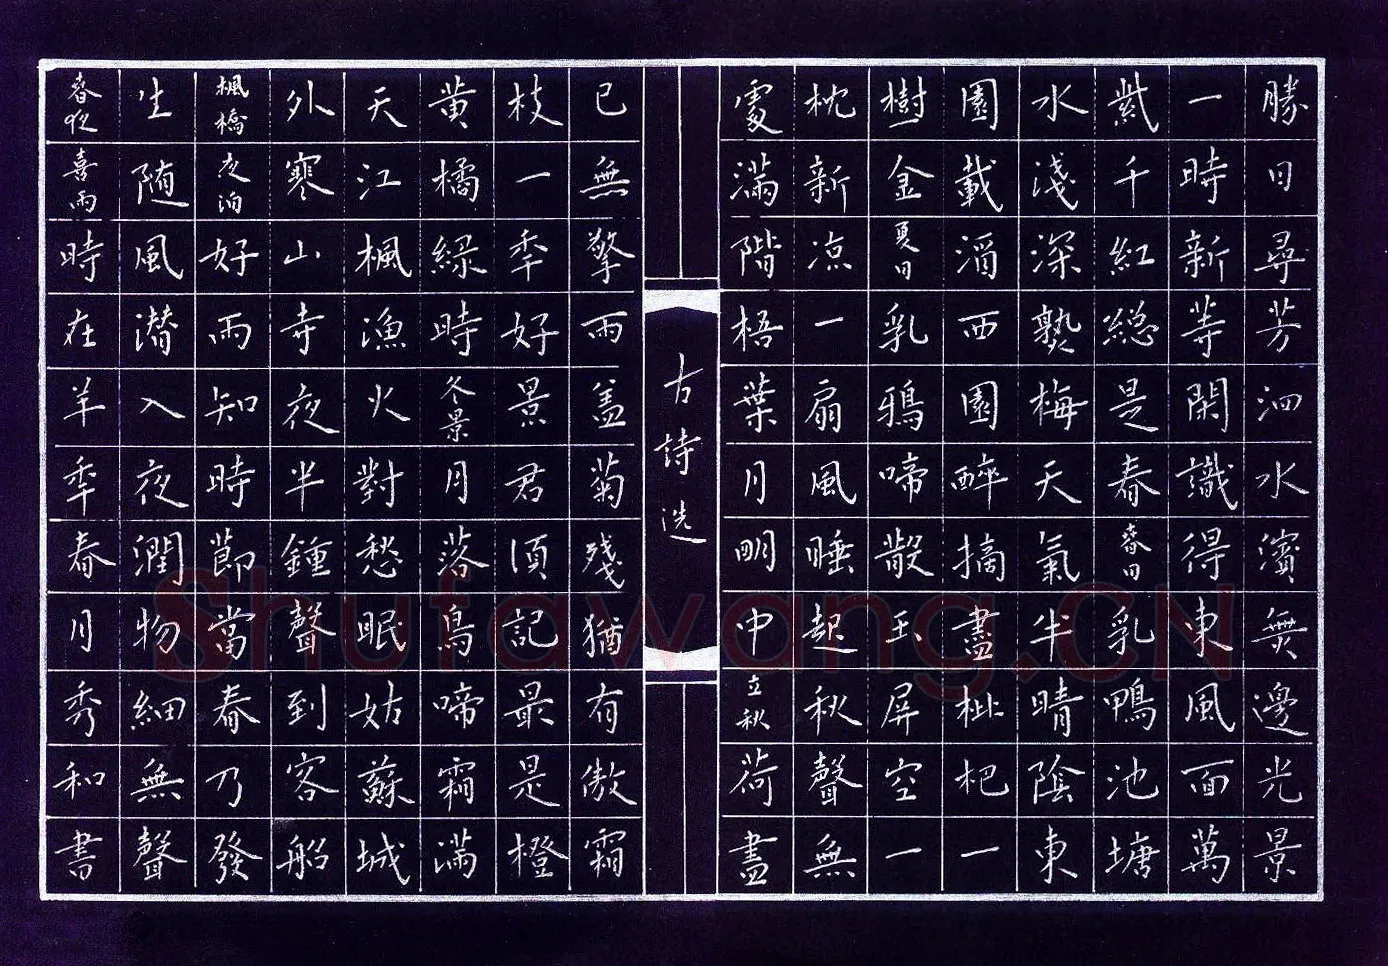 勝日尋芳泗水濱無邊光景
一時新等閑識得東風面萬
紫千紅總是春春日乳鴨池塘
水淺深熟梅天氣半晴陰東
園載酒西園醉摘盡枇杷一
樹金夏日乳鴉啼散玉屏空一
枕新凉一扇風睡起秋聲無
處滿階梧葉月明中立秋荷盡
古詩选
已無擎雨盖菊殘猶有傲霜
枝一年好景君須記最是橙
黄橘緑時冬景月落烏啼霜滿
天江楓漁火對愁眠姑蘇城
外寒山寺夜半鐘聲到客船
楓橋夜泊好雨知時節當春乃發
生随風潜入夜潤物細無聲
春夜喜雨時在羊年春月秀和書
Shufawang.CN